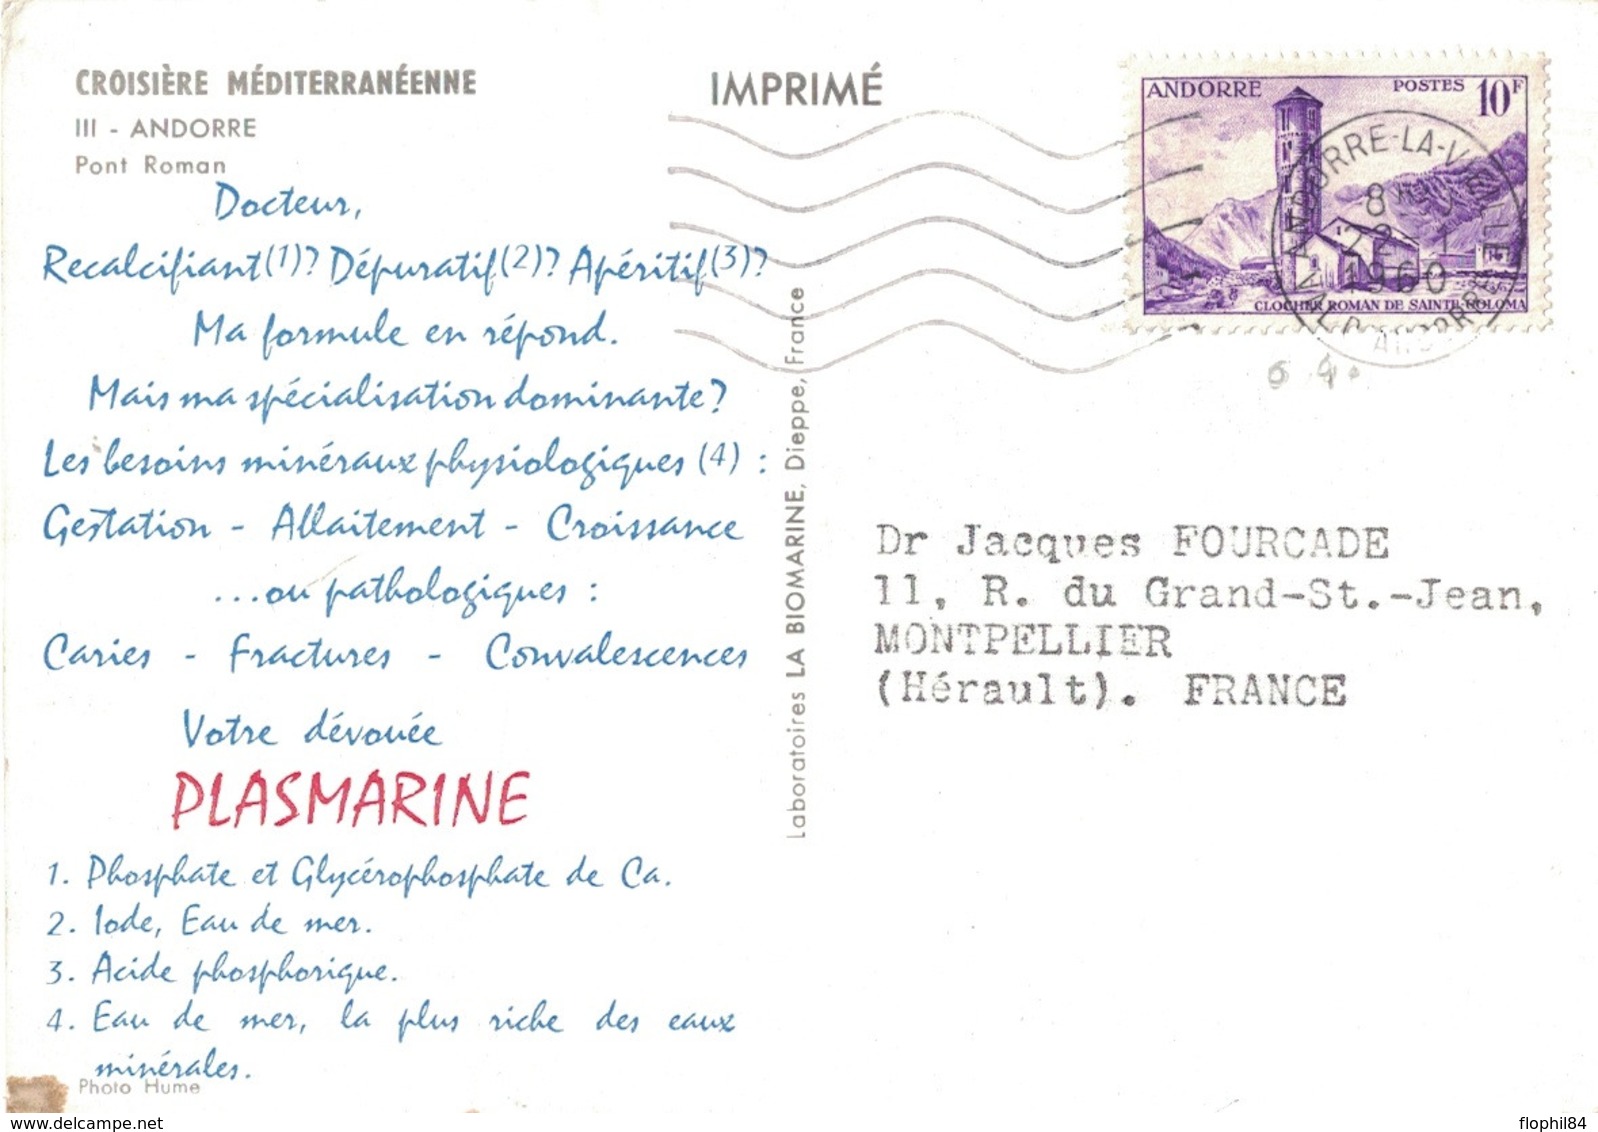 CROISIÈRE MÉDITERRANÉENNE
III - ANDORRE
Pont Roman
Docteur,
Recalcifiant(1)? Dépuratif(2)? Apéritif(3)?
Ma formule en répond.
Mais ma spécialisation dominante?
Les besoins minéraux physiologiques (4) :
Gestation - Allaitement - Croissance
...ou pathologiques :
Caries - Fractures - Convalescences
Votre dévouée
PLASMARINE
1. Phosphate et Glycérophosphate de Ca.
2. Iode, Eau de mer.
3. Acide phosphorique.
4. Eau de mer, la plus riche des eaux
minérales.
Photo Hume
Laboratoires LA BIOMARINE, Dieppe, France
IMPRIMÉ
ANDORRE POSTES 10F
CLOCHER ROMAN DE SAINTE-COLOMA
ANDORRE-LA-VIEILLE
8
22 - 1
1960
VAL D'ANDORRE
Dr Jacques FOURCADE
11, R. du Grand-St.-Jean,
MONTPELLIER
(Hérault). FRANCE
flophil84